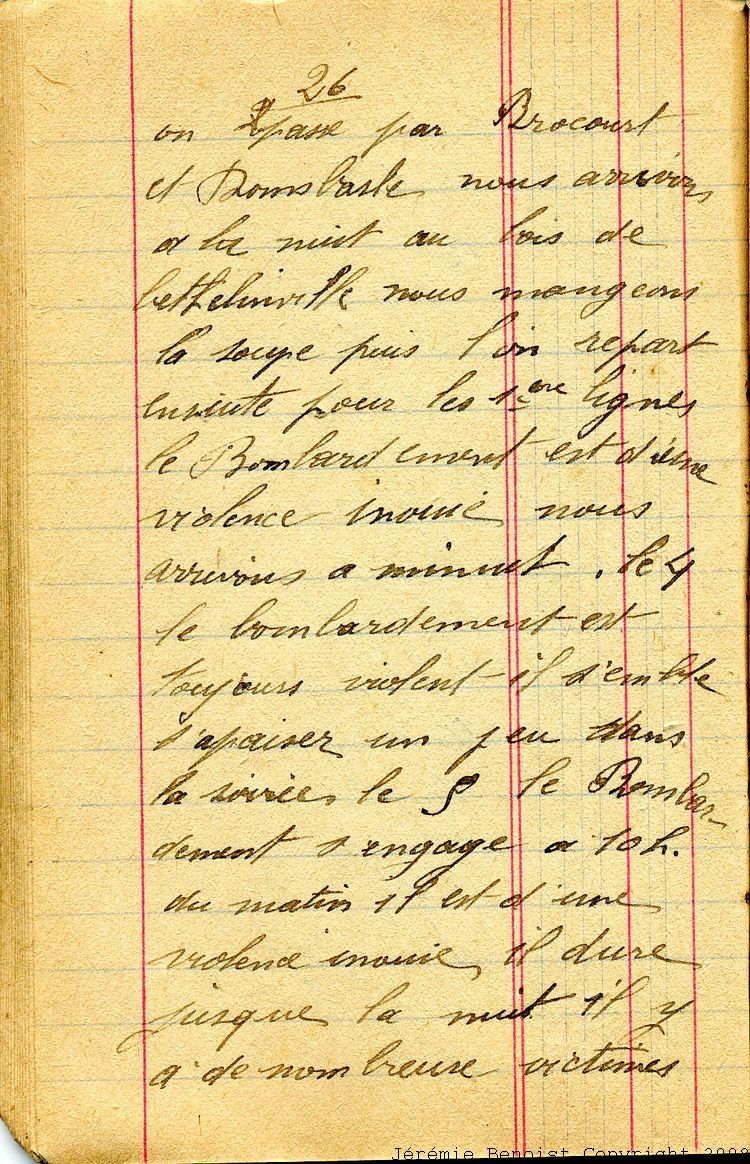 26
on passe par Brocourt
et Dombasle nous arrivons
a la nuit au bois de
bethelinville nous mangeons
la soupe puis l'on repart
ensuite pour les 1ère lignes
le Bombardement est d'une
violence inouie nous
arrivons a minuit. le 4
le bombardement est
toujours violent il s'emble
s'apaiser un peu dans
la soirée le 5 le Bombar-
dement s'engage a 10h.
du matin il est d'une
violence inouie il dure
jusque la nuit il y
a de nombreuse victimes
Jérémie Benoist Copyright